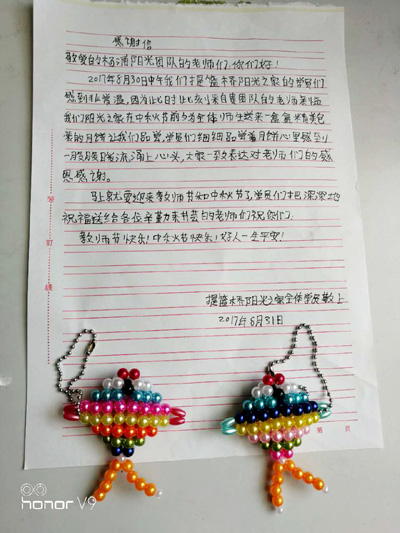 感谢信
敬爱的杨浦阳光团队的老师们,你们好!
2017年8月30日中午我们提篮桥阳光之家的学员们
感到非常温,因为此时此刻来自贵团队的老师来给
我们阳光之家在中秋节前夕为全体师生送来一盒盒精美包
装的月饼让我们品尝,学员们细细品尝着月饼心里感到
一股股暖流涌上心头,大家一致表达对老师们的感
恩感谢。
马上就要迎来教师节和中秋节了学员们把深深地
祝福送给各位辛勤来慰的老师们祝你们
教师节快乐!中秋节快乐!好人一生平安!
提篮桥阳光之家全体学员敬上
2017年8月31日
装
订
线
第 页
honor V9